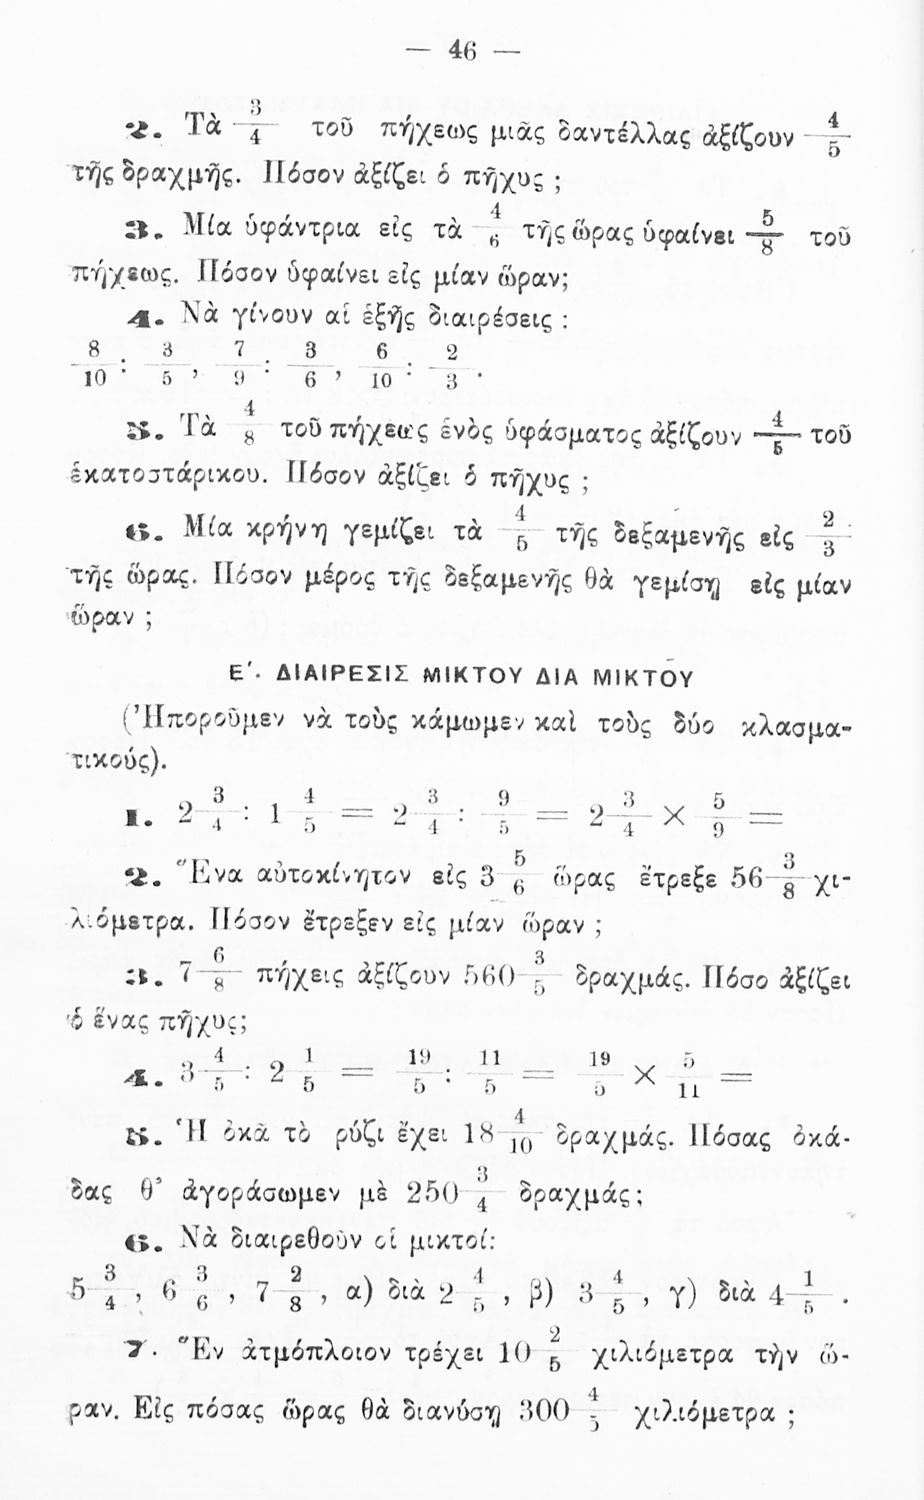 — 46 —
2. Τὰ 3/4 τοῦ πήχεως μιᾶς δαντέλλας ἀξίζουν 4/5
τῆς δραχμῆς. Πόσον ἀξίζει ὁ πῆχυς ;
3. Μία ὑφάντρια εἰς τὰ 4/6 τῆς ὥρας ὑφαίνει 5/8 τοῦ
πήχεως. Πόσον ὑφαίνει εἰς μίαν ὥραν;
4. Νὰ γίνουν αἱ ἑξῆς διαιρέσεις :
8/10 : 3/5 , 7/9 : 3/6 , 6/10 : 2/3 .
5. Τὰ 4/8 τοῦ πήχεως ἑνὸς ὑφάσματος ἀξίζουν 4/5 τοῦ
ἑκατοστάρικου. Πόσον ἀξίζει ὁ πῆχυς ;
6. Μία κρήνη γεμίζει τὰ 4/5 τῆς δεξαμενῆς εἰς 2/3
τῆς ὥρας. Πόσον μέρος τῆς δεξαμενῆς θὰ γεμίσῃ εἰς μίαν
ὥραν ;
Ε΄. ΔΙΑΙΡΕΣΙΣ ΜΙΚΤΟΥ ΔΙΑ ΜΙΚΤΟΥ
(Ἠποροῦμεν νὰ τοὺς κάμωμεν καὶ τοὺς δύο κλασμα-
τικούς).
1. 2 3/4 : 1 4/5 = 2 3/4 : 9/5 = 2 3/4 × 5/9 =
2. Ἕνα αὐτοκίνητον εἰς 3 5/6 ὥρας ἔτρεξε 56 3/8 χι-
λιόμετρα. Πόσον ἔτρεξεν εἰς μίαν ὥραν ;
3. 7 6/8 πήχεις ἀξίζουν 560 3/5 δραχμάς. Πόσο ἀξίζει
ὁ ἕνας πῆχυς;
4. 3 4/5 : 2 1/5 = 19/5 : 11/5 = 19/5 × 5/11 =
5. Ἡ ὀκᾶ τὸ ρύζι ἔχει 18 4/10 δραχμάς. Πόσας ὀκά-
δας θ' ἀγοράσωμεν μὲ 250 3/4 δραχμάς;
6. Νὰ διαιρεθοῦν οἱ μικτοί:
5 3/4 , 6 3/6 , 7 2/8 , α) διὰ 2 4/5 , β) 3 4/5 , γ) διὰ 4 1/5 .
7. Ἕν ἀτμόπλοιον τρέχει 10 2/5 χιλιόμετρα τὴν ὥ-
ραν. Εἰς πόσας ὥρας θὰ διανύσῃ 300 4/5 χιλιόμετρα ;